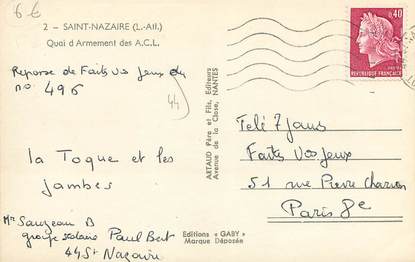 6€
2 - SAINT-NAZAIRE (L.-Atl.)
Quai d'Armement des A.C.L.
Reponse de Faites Vos Jeux du
no 496
44
la Toque et les
jambes
Mr Sauzeau B
groupe scolaire Paul Bert
44 St Nazaire
ARTAUD Père et Fils, Editeurs
Avenue de la Close, NANTES
Editions « GABY »
Marque Déposée
0,40
REPUBLIQUE FRANÇAISE
Télé 7 Jours
Faites Vos Jeux
51 rue Pierre Charron
Paris 8e